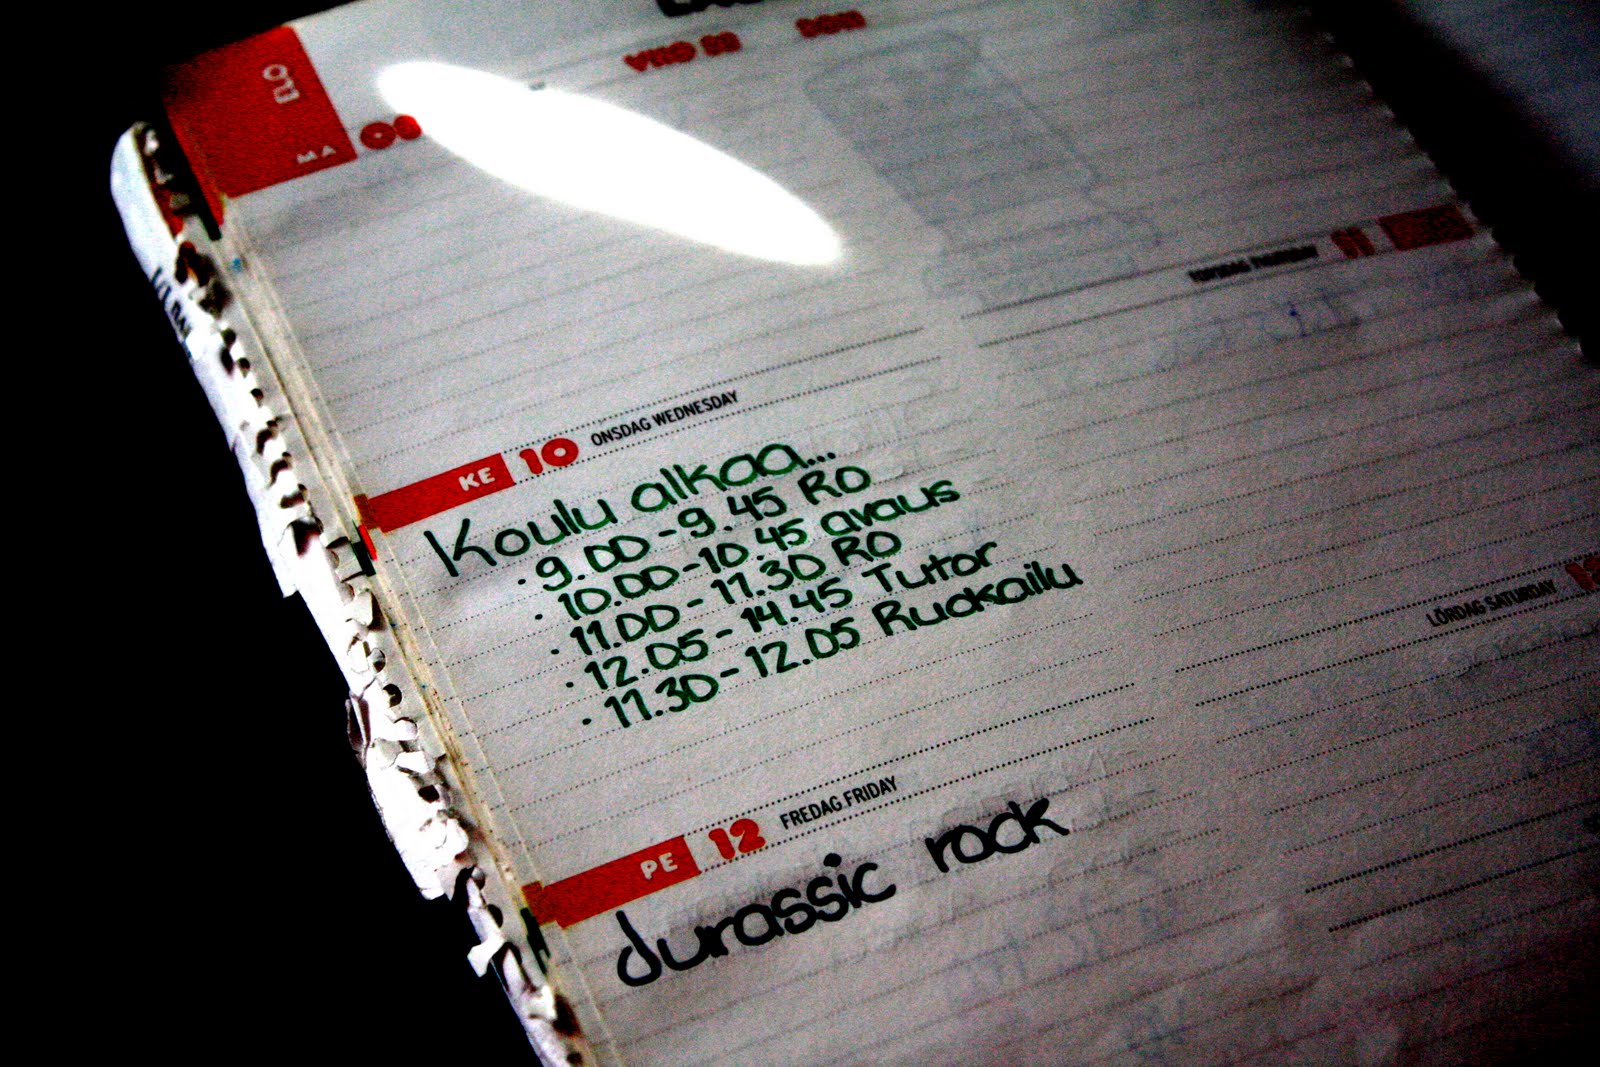 ELO
MA 08
KE 10 ONSDAG WEDNESDAY
Koulu alkaa...
· 9.00-9.45 RO
· 10.00-10.45 avaus
· 11.00-11.30 RO
· 12.05-14.45 Tutor
· 11.30-12.05 Ruokailu
PE 12 FREDAG FRIDAY
Jurassic rock
TORSDAG THURSDAY 11
LÖRDAG SATURDAY